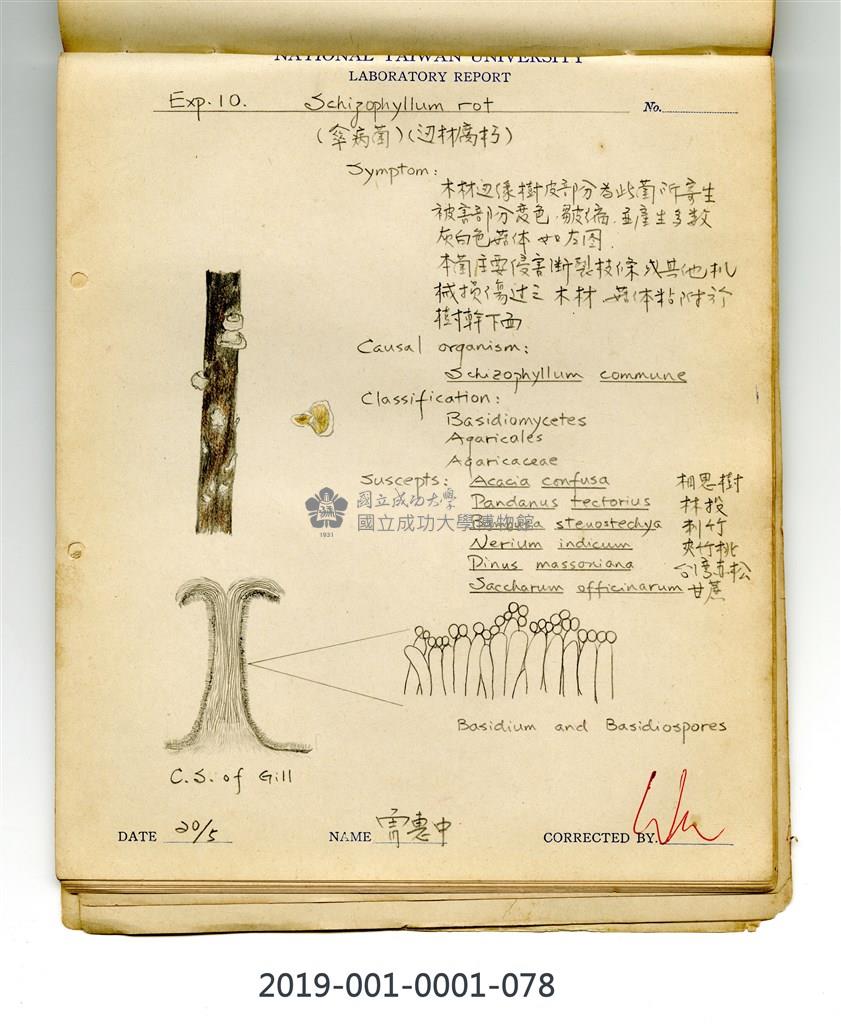 NATIONAL TAIWAN UNIVERSITY
LABORATORY REPORT
Exp. 10. Schizophyllum rot No.
(傘病菌)(辺材腐朽)
Symptom:
木材辺緣樹皮部分為此菌所寄生
被害部分变色.皺縮.並產生多数
灰白色菇体如左图.
本菌主要侵害断裂枝條或其他机
械损傷过之木材.菇体粘附於
樹幹下面
Causal organism:
Schizophyllum commune
Classification:
Basidiomycetes
Agaricales
Agaricaceae
Suscepts: Acacia confusa 相思樹
Pandanus tectorius 林投
stenostechya 刺竹
Nerium indicum 夾竹桃
Pinus massoniana 台湾赤松
Saccharum officinarum 甘蔗
國立成功大學
國立成功大學博物館
1931
Basidium and Basidiospores
C.S. of Gill
DATE 20/5 NAME 惠中 CORRECTED BY.
2019-001-0001-078